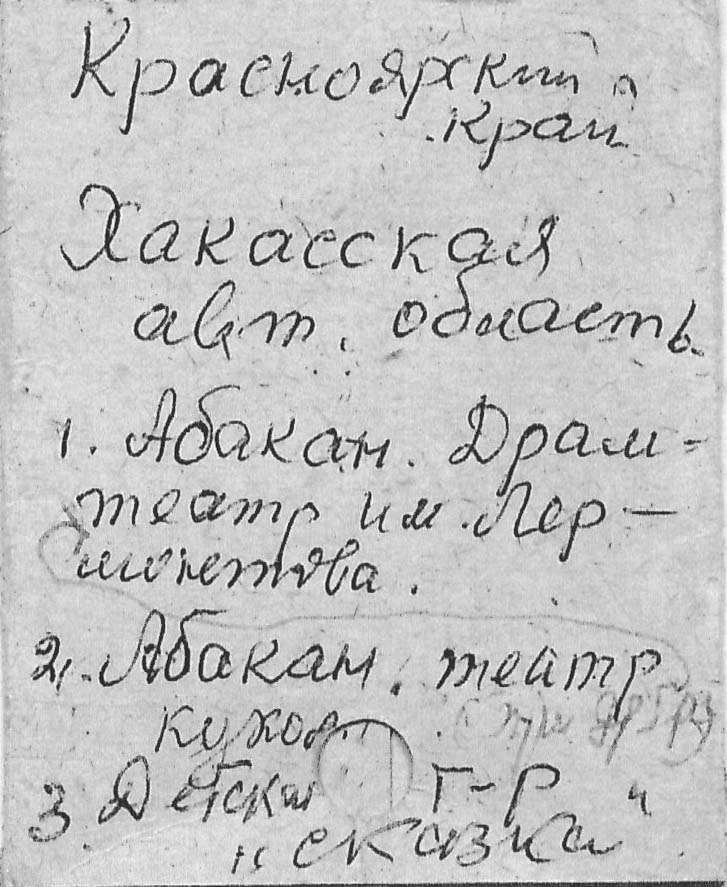 Красноярский
край
Хакасская
авт. область
1. Абакан. Драм-
театр им. Лер-
монтова.
2. Абакан. театр
кукол
3. Детский т-р
"сказка"